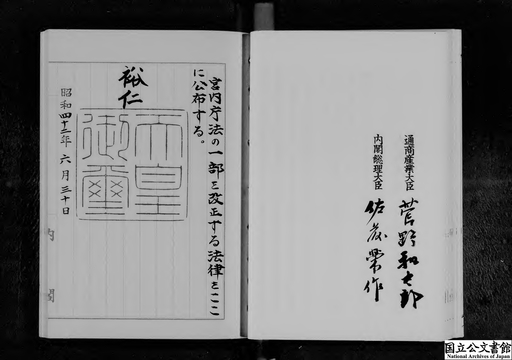 通商産業大臣 菅野和太郎
内閣総理大臣 佐藤榮作
宮内庁法の一部を改正する法律をここ
に公布する。
裕仁
天皇
御璽
昭和四十二年六月三十日
内閣
国立公文書館
National Archives of Japan